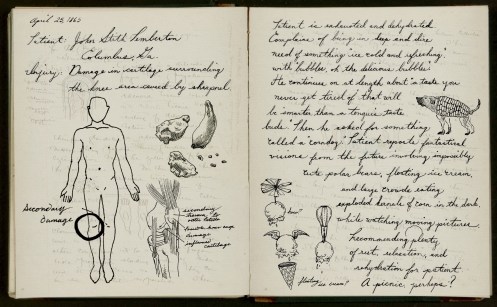 April 22, 1865
Patient: John Stith Pemberton
Columbus, Ga
Injury: Damage on cartilage surrounding
the knee area caused by shrapnel.
Secondary
damage
secondary
damage
cartilage
Patient is exhausted and dehydrated.
Complains of being in deep and dire
need of something "ice cold and refreshing"
with "bubbles, oh the delicious bubbles."
He continues on at length about "a taste you
never get tired of that will
be smarter than a tongue's taste
buds." Then he asked for something
called a "corndog." Patient reports fantastical
visions from the future involving impossibly
cute polar bears, floating ice cream,
and large crowds eating
exploded kernels of corn in the dark,
while watching moving pictures.
Recommending plenty
of rest, relaxation, and
rehydration for patient.
A picnic, perhaps?
floating
ice cream?